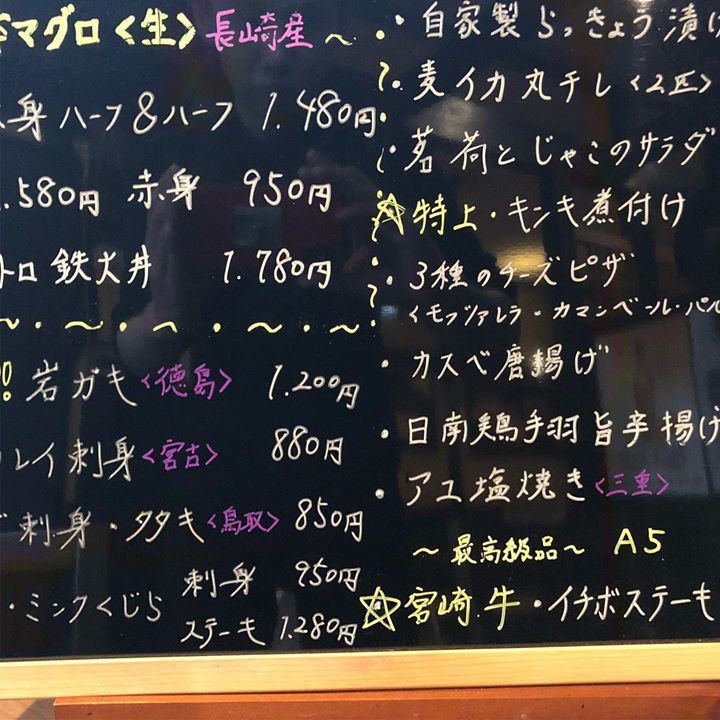 マグロ〈生〉長崎産 ~
身 ハーフ&ハーフ 1.480円
.580円 赤身 950円
トロ 鉄火丼 1.780円
~・~・~・~・~
!! 岩ガキ〈徳島〉 1.200円
レイ刺身〈宮古〉 880円
刺身・タタキ〈鳥取〉 850円
・ミンクくじら 刺身 950円
ステーキ 1.280円
・自家製らっきょう漬け
・麦イカ丸チレ〈2匹〉
・茗荷とじゃこのサラダ
☆特上・キンキ煮付け
・3種のチーズピザ
〈モッツァレラ・カマンベール・パル
・カスベ唐揚げ
・日南鶏手羽旨辛揚げ
・アユ塩焼き〈三重〉
~最高級品~ A5
☆宮崎牛・イチボステーキ